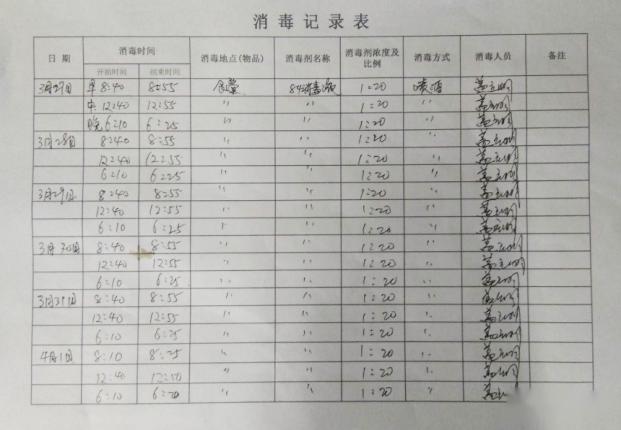 消毒记录表
日期 消毒时间 消毒地点(物品) 消毒剂名称 消毒剂浓度及比例 消毒方式 消毒人员 备注
开始时间 结束时间
3月27日 早 8:40 8:55 食堂 84消毒液 1:20 喷洒
中 12:40 12:55 〃 〃 1:20 〃
晚 6:10 6:25 〃 〃 1:20 〃
3月28日 8:40 8:55 〃 〃 1:20
12:40 12:55 〃 〃 1:20 〃
6:10 6:25 〃 〃 1:20 〃
3月29日 8:40 8:55 〃 〃 1:20 〃
12:40 12:55 〃 〃 1:20 〃
6:10 6:25 〃 〃 1:20 〃
3月30日 8:40 8:55 〃 〃 1:20 〃
12:40 12:55 〃 〃 1:20 〃
6:10 6:25 〃 〃 1:20 〃
3月31日 8:40 8:55 〃 〃 1:20 〃
12:40 12:55 〃 〃 1:20 〃
6:10 6:25 〃 〃 1:20 〃
4月1日 8:10 8:25 〃 〃 1:20 〃
12:40 〃 〃 1:20 〃
6:10 6:20 〃 〃 1:20 〃